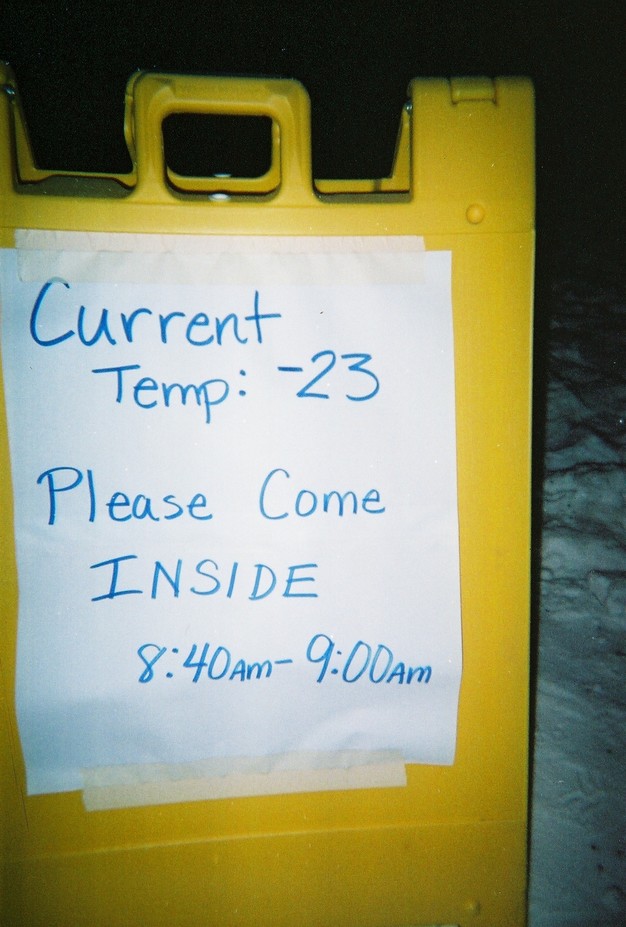 Current
Temp: -23
Please Come
INSIDE
8:40AM - 9:00AM